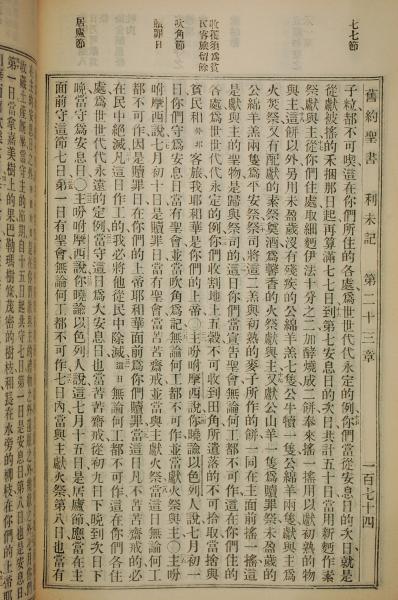 七七節
收穫須爲貧
民客旅留餘
吹角節
贖罪日
居廬節
舊約聖書 利未記 第二十三章 一百七十四
子粒都不可喫這在你們所住的各處爲世世代代永定的例你們當從安息日的次日就是
從獻被搖的禾捆那日起再算滿七七日到第七安息日的次日共計五十日當用新麵作素
祭獻與主從你們住處取細麵伊法十分之二加酵燒成二餅奉來搖一搖用以獻初熟的物
與主這餅以外另用未盈歲沒有殘疾的公綿羊羔七隻公牛犢一隻公綿羊兩隻獻與主爲
火焚祭又有配獻的素祭奠酒爲馨香的火祭獻與主又獻公山羊一隻爲贖罪祭未盈歲的
公綿羊羔兩隻爲平安祭祭司將這二羔與初熟的麥子所作的餅一同在主面前搖一搖這
是獻與主的聖物是歸與祭司的這日你們當宣告聖會無論何工都不可作這在你們所住的
各處爲世世代代永定的例你們收割地上五穀不可收到田角所遺落的不可拾取當捨與
貧民和外邦客旅我耶和華是你們的上帝〇主吩咐摩西說你曉諭以色列人說七月初一
日你們守爲安息日當有聖會並當吹角爲記無論何工都不可作並當獻火祭與主〇主吩
咐摩西說七月初十日是贖罪日當有聖會當苦苦齋戒並當與主獻火祭當這日無論何工
都不可作因是贖罪日在你們的上帝耶和華面前爲你們贖罪當這日凡不苦苦齋戒的必
在民中絕滅凡這日作工的我必將他從民中除滅這日無論何工都不可作這在你們各住
處爲世世代代永遠的定例當守這日爲大安息日也當苦苦齋戒從初九日下晚到次日下
晚當守爲安息日〇主吩咐摩西說你曉諭以色列人說這七月十五日是居廬節應當在主
面前守這節七日第一日有聖會無論何工都不可作七日內當與主獻火祭第八日也當有
收藏了土產應當守主的節期自十五日起共守七日第一日是安息日第八日也是安息日
第一日當拿嘉美樹上的果巴勒瑪樹條茂密的樹枝和長在水旁的柳枝在你們的上帝耶